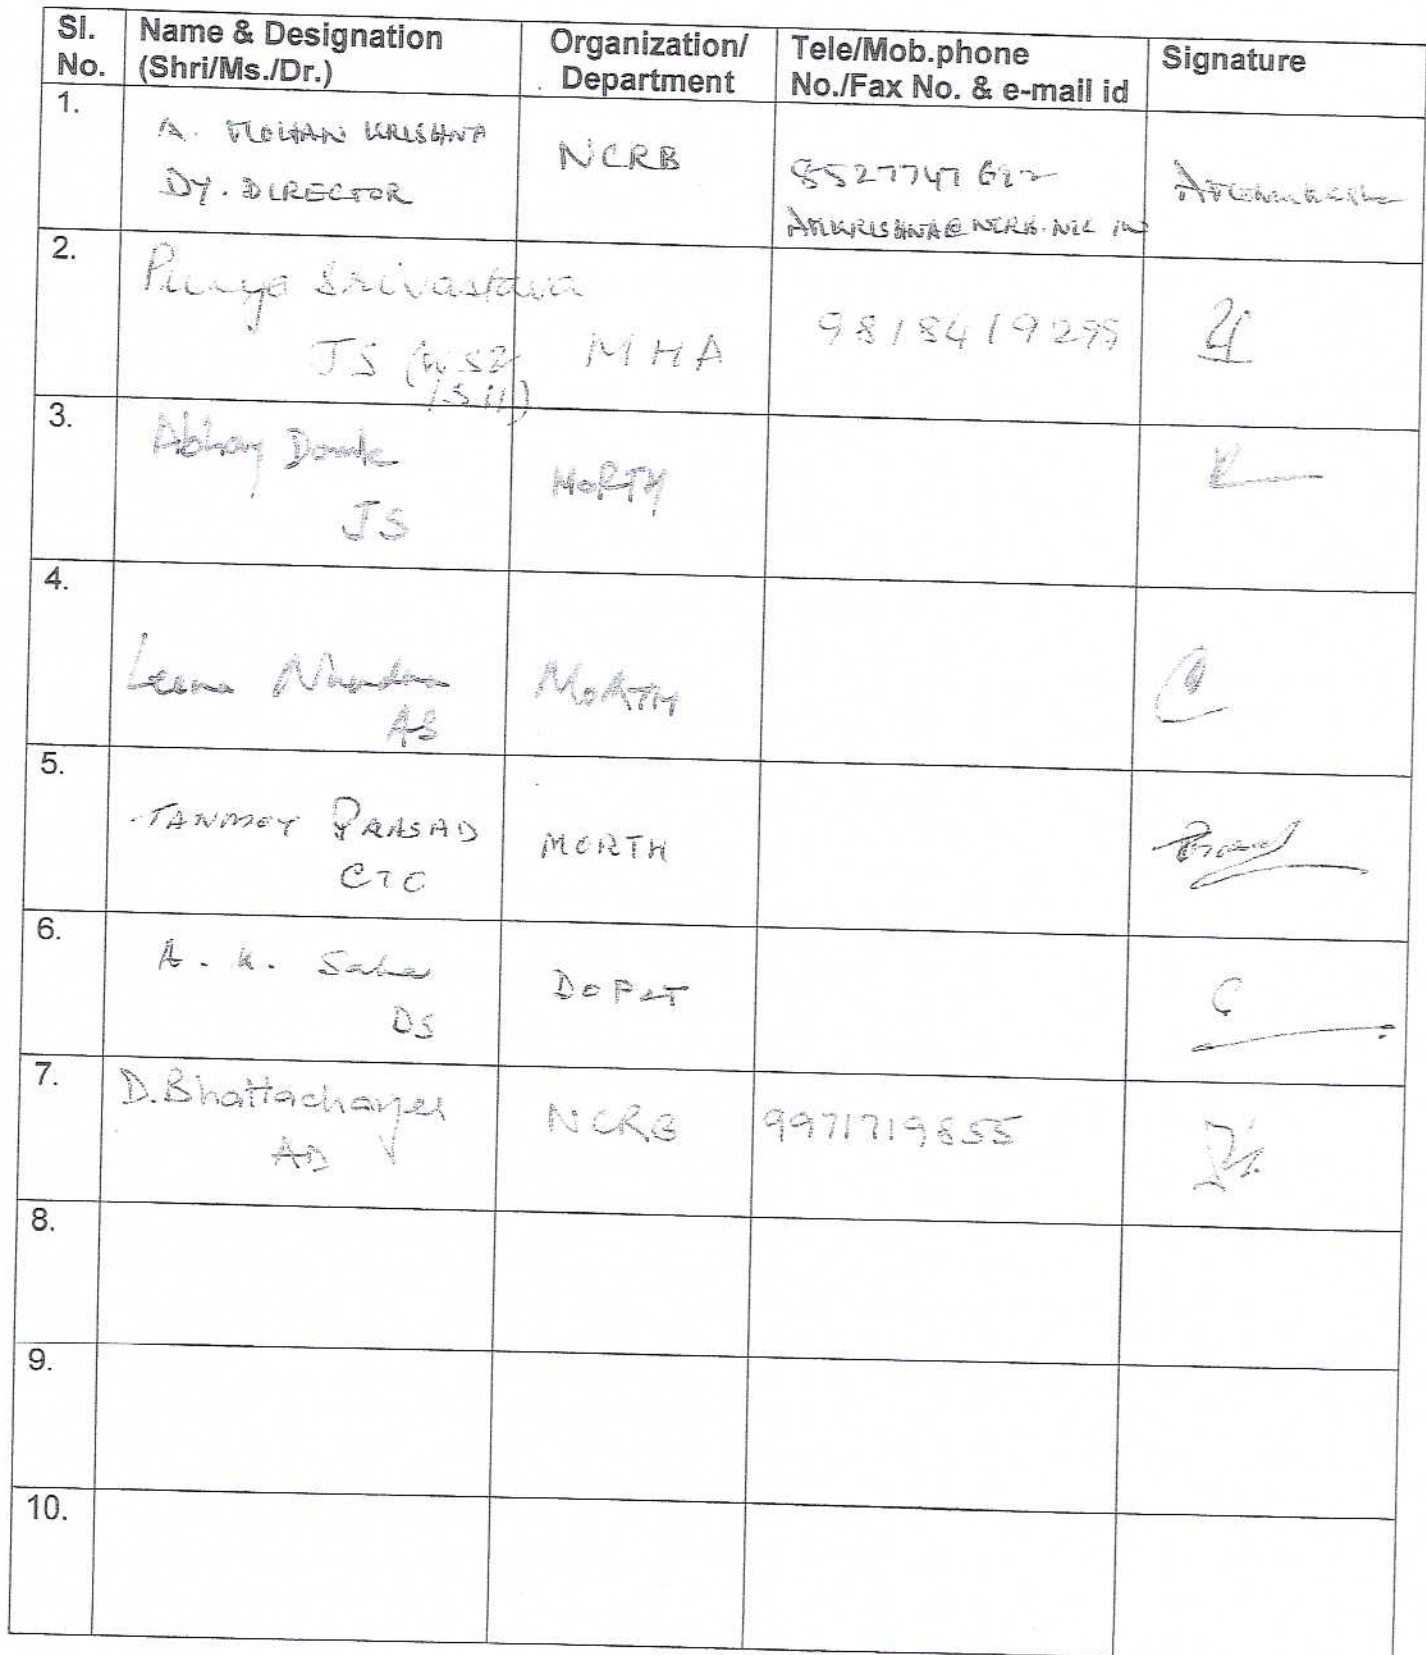 Sl. No. Name & Designation (Shri/Ms./Dr.) Organization/ Department Tele/Mob.phone No./Fax No. & e-mail id Signature
1.
A. MOHAN KRISHNA
DY. DIRECTOR
NCRB
8527747622
AMKRISHNA@NCRB.NIC.IN
2.
Punya Srivastava
JS
MHA
9818419295
3.
Abhay Damle
JS
MoRTH
4.
Leena Nandan
AS
MoRTH
5.
TANMOY PRASAD
CTO
MORTH
Prasad
6.
A. K. Saha
DS
DOP&T
7.
D. Bhattacharyee
AD
NCRB
9971719855
8.
9.
10.